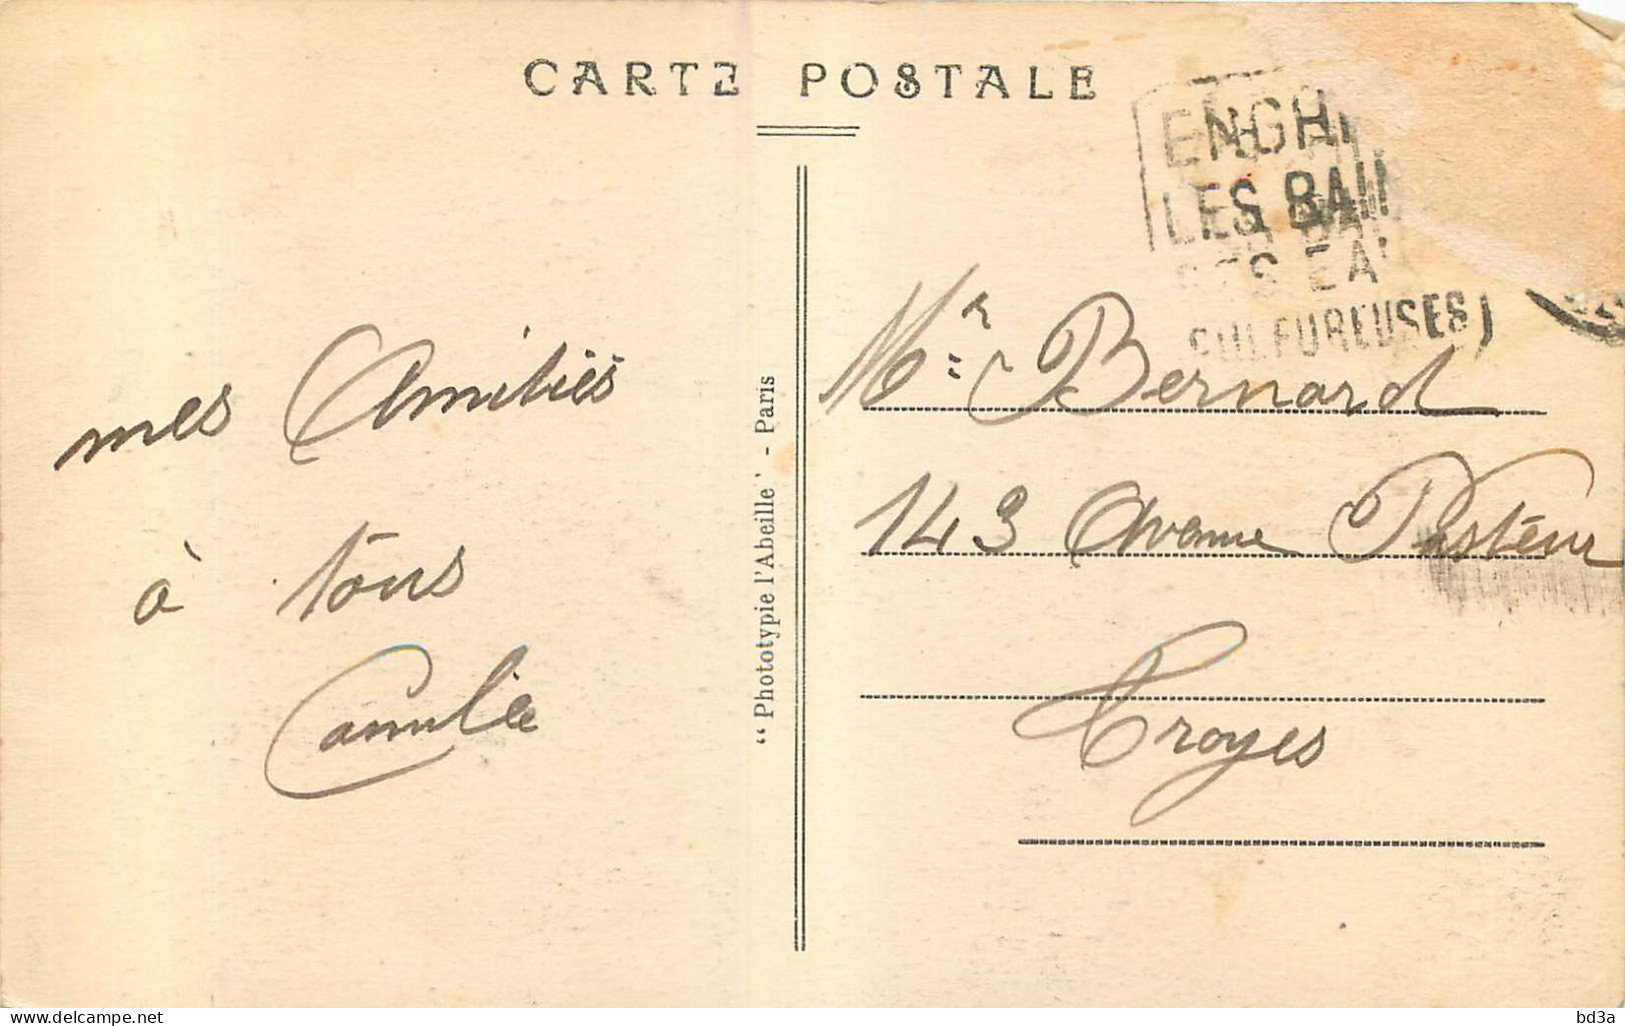 CARTE POSTALE
ENGHI
LES BAI
SES EA
SULFUREUSES)
mes Amitiés
à tous
Camille
"Phototypie l'Abeille" - Paris
Mr: Bernard
143 Avenue Pasteur
Troyes
Delcampe.net
bd3a